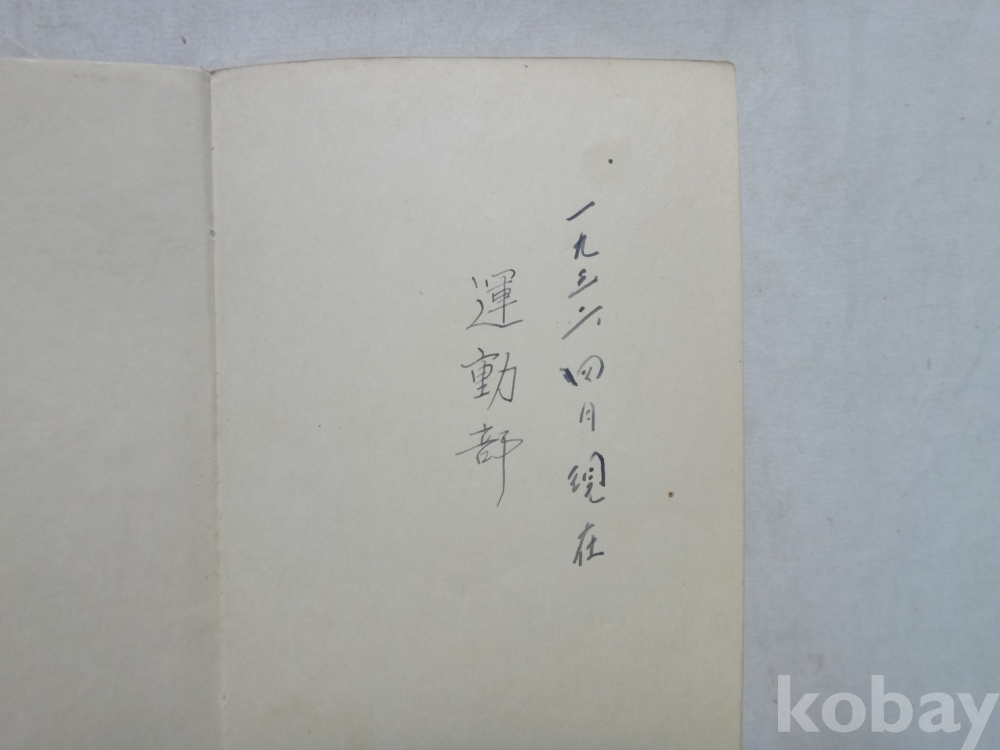 一九三六四月現在
運動部
kobay